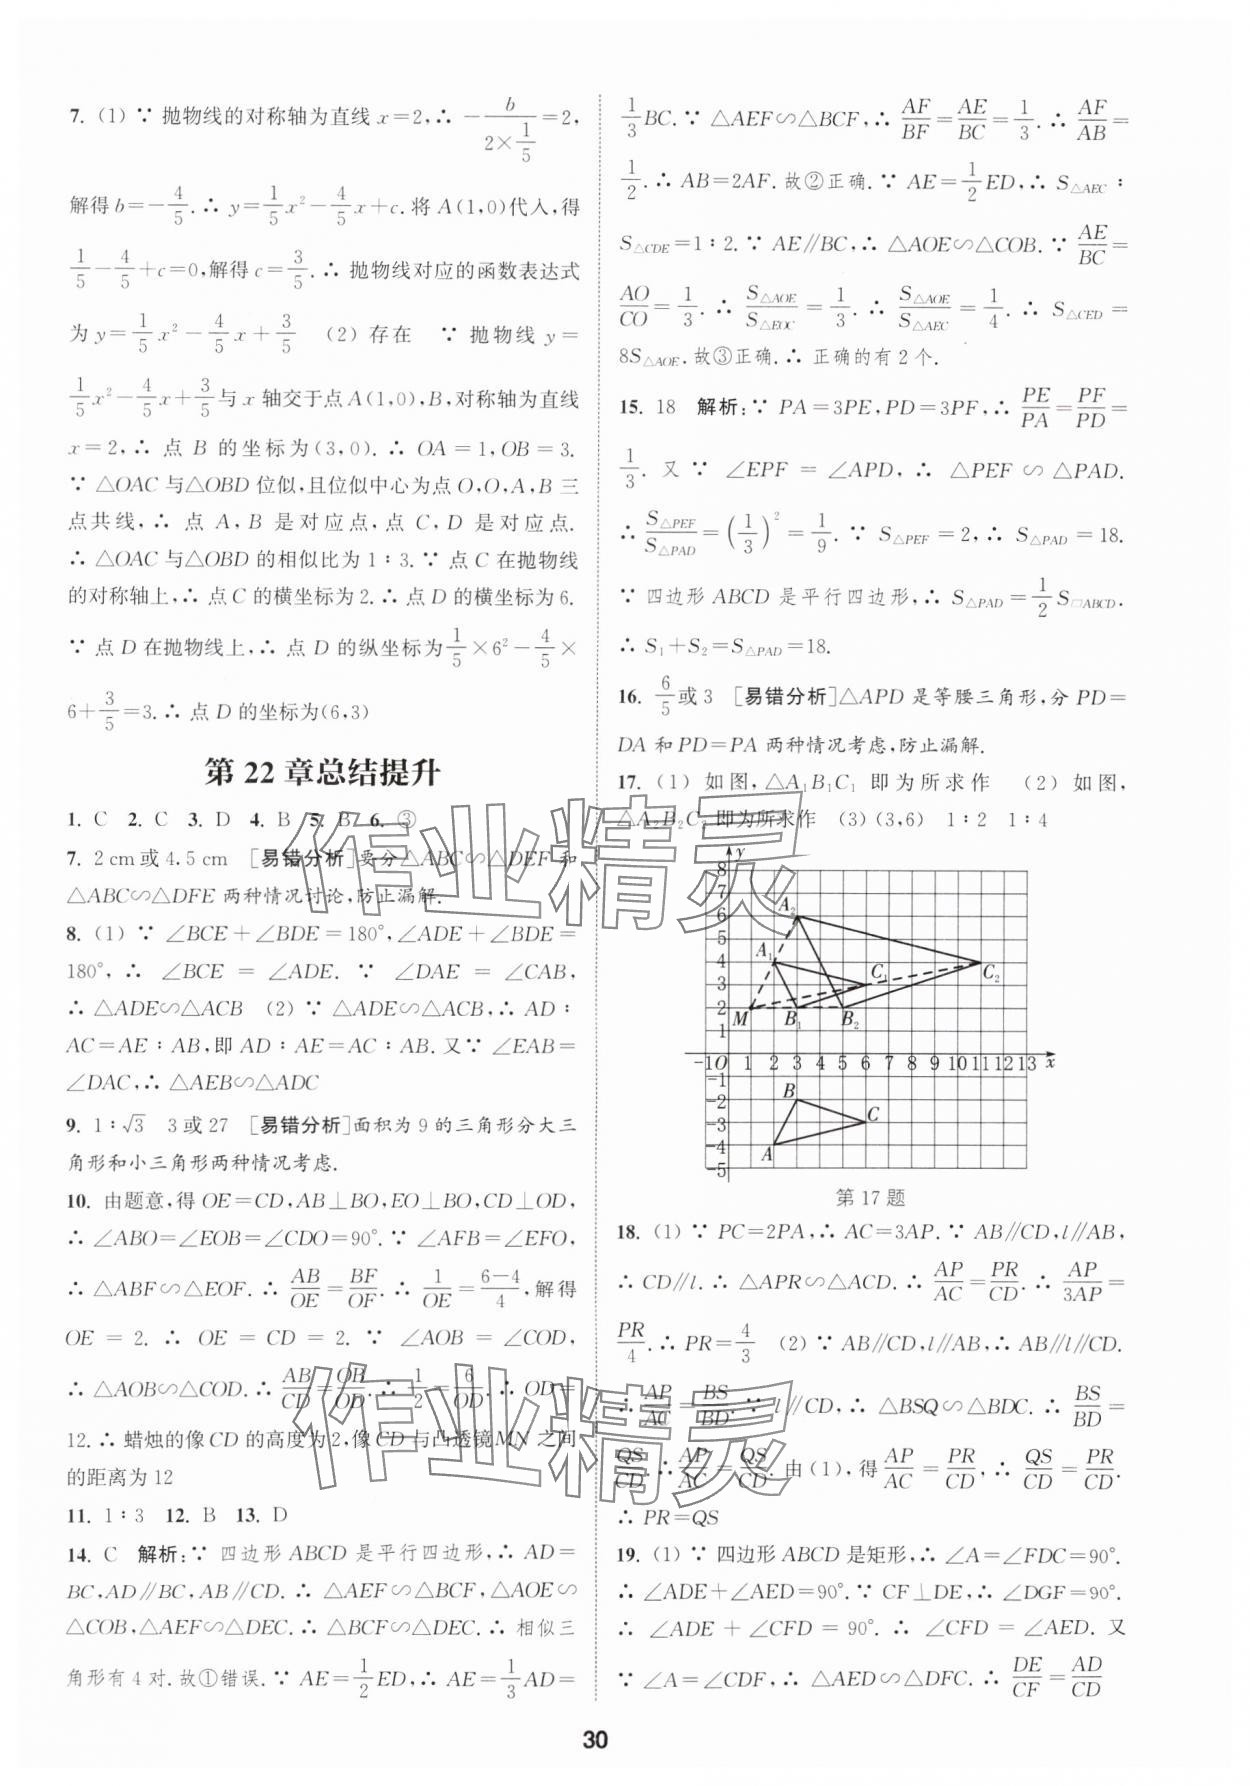 7. (1) ∵ 抛物线的对称轴为直线 x=2,∴ -b/(2×1/5)=2,
解得 b=-4/5.∴ y=1/5x²-4/5x+c.将 A(1,0)代入,得
1/5-4/5+c=0,解得 c=3/5.∴ 抛物线对应的函数表达式
为 y=1/5x²-4/5x+3/5 (2) 存在 ∵ 抛物线 y=
1/5x²-4/5x+3/5与 x 轴交于点 A(1,0),B,对称轴为直线
x=2,∴ 点 B 的坐标为(3,0).∴ OA=1,OB=3.
∵ △OAC 与△OBD 位似,且位似中心为点 O,O,A,B 三
点共线,∴ 点 A,B 是对应点,点 C,D 是对应点.
∴ △OAC 与△OBD 的相似比为 1∶3.∵ 点 C 在抛物线
的对称轴上,∴ 点 C 的横坐标为 2.∴ 点 D 的横坐标为 6.
∵ 点 D 在抛物线上,∴ 点 D 的纵坐标为1/5×6²-4/5×
6+3/5=3.∴ 点 D 的坐标为(6,3)
第 22 章总结提升
1. C 2. C 3. D 4. B 5. B 6. ③
7. 2 cm 或 4.5 cm [易错分析]要分△ABC∽△DEF 和
△ABC∽△DFE 两种情况讨论,防止漏解.
8. (1) ∵ ∠BCE+∠BDE=180°,∠ADE+∠BDE=
180°,∴ ∠BCE=∠ADE. ∵ ∠DAE=∠CAB,
∴ △ADE∽△ACB (2) ∵ △ADE∽△ACB,∴ AD∶
AC=AE∶AB,即 AD∶AE=AC∶AB.又∵ ∠EAB=
∠DAC,∴ △AEB∽△ADC
9. 1∶√3 3 或 27 [易错分析]面积为 9 的三角形分大三
角形和小三角形两种情况考虑.
10. 由题意,得 OE=CD,AB⊥BO,EO⊥BO,CD⊥OD,
∴ ∠ABO=∠EOB=∠CDO=90°.∵ ∠AFB=∠EFO,
∴ △ABF∽△EOF.∴ AB/OE=BF/OF.∴ 1/OE=(6-4)/4,解得
OE=2.∴ OE=CD=2.∵ ∠AOB=∠COD,
∴ △AOB∽△COD.∴ AB/CD=OB/OD.∴ 1/2=6/OD.∴ OD=
12.∴ 蜡烛的像 CD 的高度为 2,像 CD 与凸透镜 MN 之间
的距离为 12
11. 1∶3 12. B 13. D
14. C 解析:∵ 四边形 ABCD 是平行四边形,∴ AD=
BC,AD∥BC,AB∥CD.∴ △AEF∽△BCF,△AOE∽
△COB,△AEF∽△DEC.∴ △BCF∽△DEC.∴ 相似三
角形有 4 对.故①错误.∵ AE=1/2ED,∴ AE=1/3AD=
1/3BC.∵ △AEF∽△BCF,∴ AF/BF=AE/BC=1/3.∴ AF/AB=
1/2.∴ AB=2AF.故②正确.∵ AE=1/2ED,∴ S△AEC∶
S△CDE=1∶2.∵ AE∥BC,∴ △AOE∽△COB.∵ AE/BC=
AO/CO=1/3.∴ S△AOE/S△EOC=1/3.∴ S△AOE/S△AEC=1/4.∴ S△CED=
8S△AOE.故③正确.∴ 正确的有 2 个.
15. 18 解析:∵ PA=3PE,PD=3PF,∴ PE/PA=PF/PD=
1/3.又∵ ∠EPF=∠APD,∴ △PEF∽△PAD.
∴ S△PEF/S△PAD=(1/3)²=1/9.∵ S△PEF=2,∴ S△PAD=18.
∵ 四边形 ABCD 是平行四边形,∴ S△PAD=1/2S□ABCD.
∴ S₁+S₂=S△PAD=18.
16. 6/5或 3 [易错分析]△APD 是等腰三角形,分 PD=
DA 和 PD=PA 两种情况考虑,防止漏解.
17. (1) 如图,△A₁B₁C₁ 即为所求作 (2) 如图,
△A₂B₂C₂ 即为所求作 (3) (3,6) 1∶2 1∶4
y
8
7
6 A₂
5
4 A₁ C₂
3 C₁
2 M B₁ B₂
1
-1 O 1 2 3 4 5 6 7 8 9 10 11 12 13 x
-1
-2 B
-3 C
-4 A
-5
第 17 题
18. (1) ∵ PC=2PA,∴ AC=3AP.∵ AB∥CD,l∥AB,
∴ CD∥l.∴ △APR∽△ACD.∴ AP/AC=PR/CD.∴ AP/3AP=
PR/4.∴ PR=4/3 (2) ∵ AB∥CD,l∥AB,∴ AB∥l∥CD.
∴ AP/AC=BS/BD.∵ l∥CD,∴ △BSQ∽△BDC.∴ BS/BD=
QS/CD.∴ AP/AC=QS/CD.由(1),得AP/AC=PR/CD,∴ QS/CD=PR/CD.
∴ PR=QS
19. (1) ∵ 四边形 ABCD 是矩形,∴ ∠A=∠FDC=90°.
∴ ∠ADE+∠AED=90°.∵ CF⊥DE,∴ ∠DGF=90°.
∴ ∠ADE+∠CFD=90°.∴ ∠CFD=∠AED.又
∵ ∠A=∠CDF,∴ △AED∽△DFC.∴ DE/CF=AD/CD
30
作业精灵
作业精灵